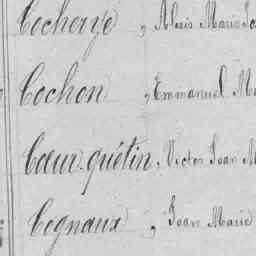 Cocherye, Alexis Marie
Cochon, Emmanuel
Cœur-quétin, Victor Jean
Cognaux, Jean Marie